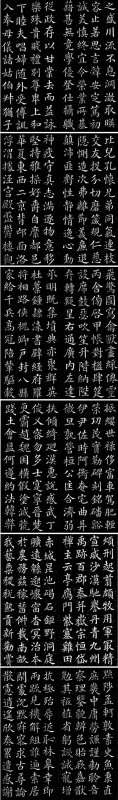 之盛川流不息淵澄取映
容止若思言辭安定篤初
誠美慎終宜令榮業所基
籍甚無竟學優登仕攝職
從政存以甘棠去而益詠
樂殊貴賤禮別尊卑上和
下睦夫唱婦隨外受傅訓
入奉母儀諸姑伯叔猶子
比兒孔懷兄弟同氣連枝
交友投分切磨箴規仁慈
隱惻造次弗離節義廉退
顛沛匪虧性靜情逸心動
神疲守真志滿逐物意移
堅持雅操好爵自縻都邑
華夏東西二京背邙面洛
浮渭據涇宮殿盤鬱樓觀
飛驚圖寫禽獸畫綵仙靈
丙舍傍啟甲帳對楹肆筵
設席鼓瑟吹笙升階納陛
弁轉疑星右通廣內左達
承明既集墳典亦聚群英
杜稾鍾隸漆書壁經府羅
將相路俠槐卿戶封八縣
家給千兵高冠陪輦驅轂
振纓世祿侈富車駕肥輕
策功茂實勒碑刻銘磻溪
伊尹佐時阿衡奄宅曲阜
微旦孰營桓公匡合濟弱
扶傾綺迴漢惠說感武丁
俊乂密勿多士寔寧晉楚
更霸趙魏困橫假途滅虢
踐土會盟何遵約法韓弊
煩刑起翦頗牧用軍最精
宣威沙漠馳譽丹青九州
禹跡百郡秦并嶽宗恆岱
禪主云亭鴈門紫塞雞田
赤城昆池碣石鉅野洞庭
曠遠緜邈巖岫杳冥治本
於農務茲稼穡俶載南畝
我藝黍稷稅熟貢新勸賞
黜陟孟軻敦素史魚秉直
庶幾中庸勞謙謹敕聆音
察理鑑貌辨色貽厥嘉猷
勉其祗植省躬譏誡寵增
抗極殆辱近恥林皋幸即
兩疏見機解組誰逼索居
閑處沉默寂寥求古尋論
散慮逍遙欣奏累遣慼謝